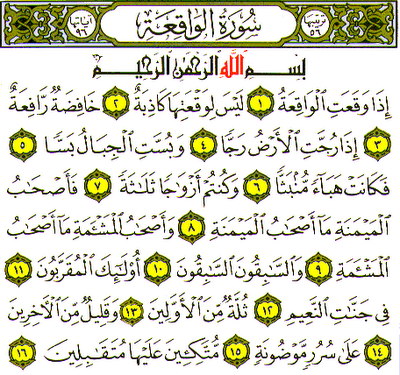 ترتيبها ٥٦ سورة الواقعة آياتها ٩٦
بسم الله الرحمن الرحيم
إذا وقعت الواقعة ١ ليس لوقعتها كاذبة ٢ خافضة رافعة
٣ إذا رجت الأرض رجا ٤ وبست الجبال بسا ٥
فكانت هباء منبثا ٦ وكنتم أزواجا ثلاثة ٧ فأصحاب
الميمنة ما أصحاب الميمنة ٨ وأصحاب المشئمة ما أصحاب
المشئمة ٩ والسابقون السابقون ١٠ أولئك المقربون ١١
في جنات النعيم ١٢ ثلة من الأولين ١٣ وقليل من الآخرين
١٤ على سرر موضونة ١٥ متكئين عليها متقابلين ١٦